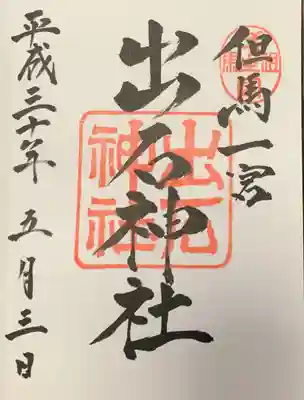 但馬一宮
出石神社
平成三十年 五月三日
出石神社